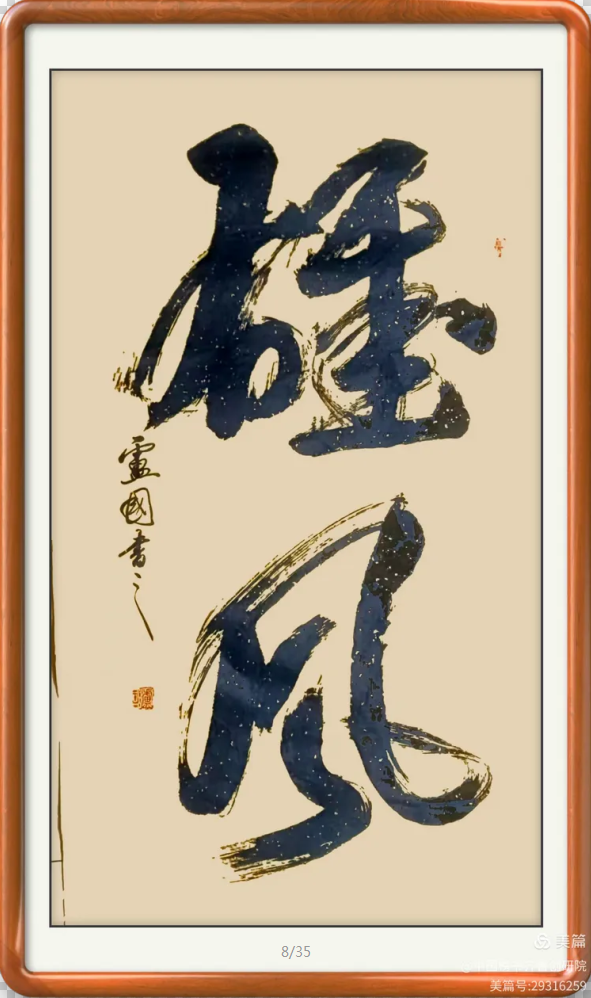 雄风
霊國書之
8/35
美篇
研院
美篇号:29316259